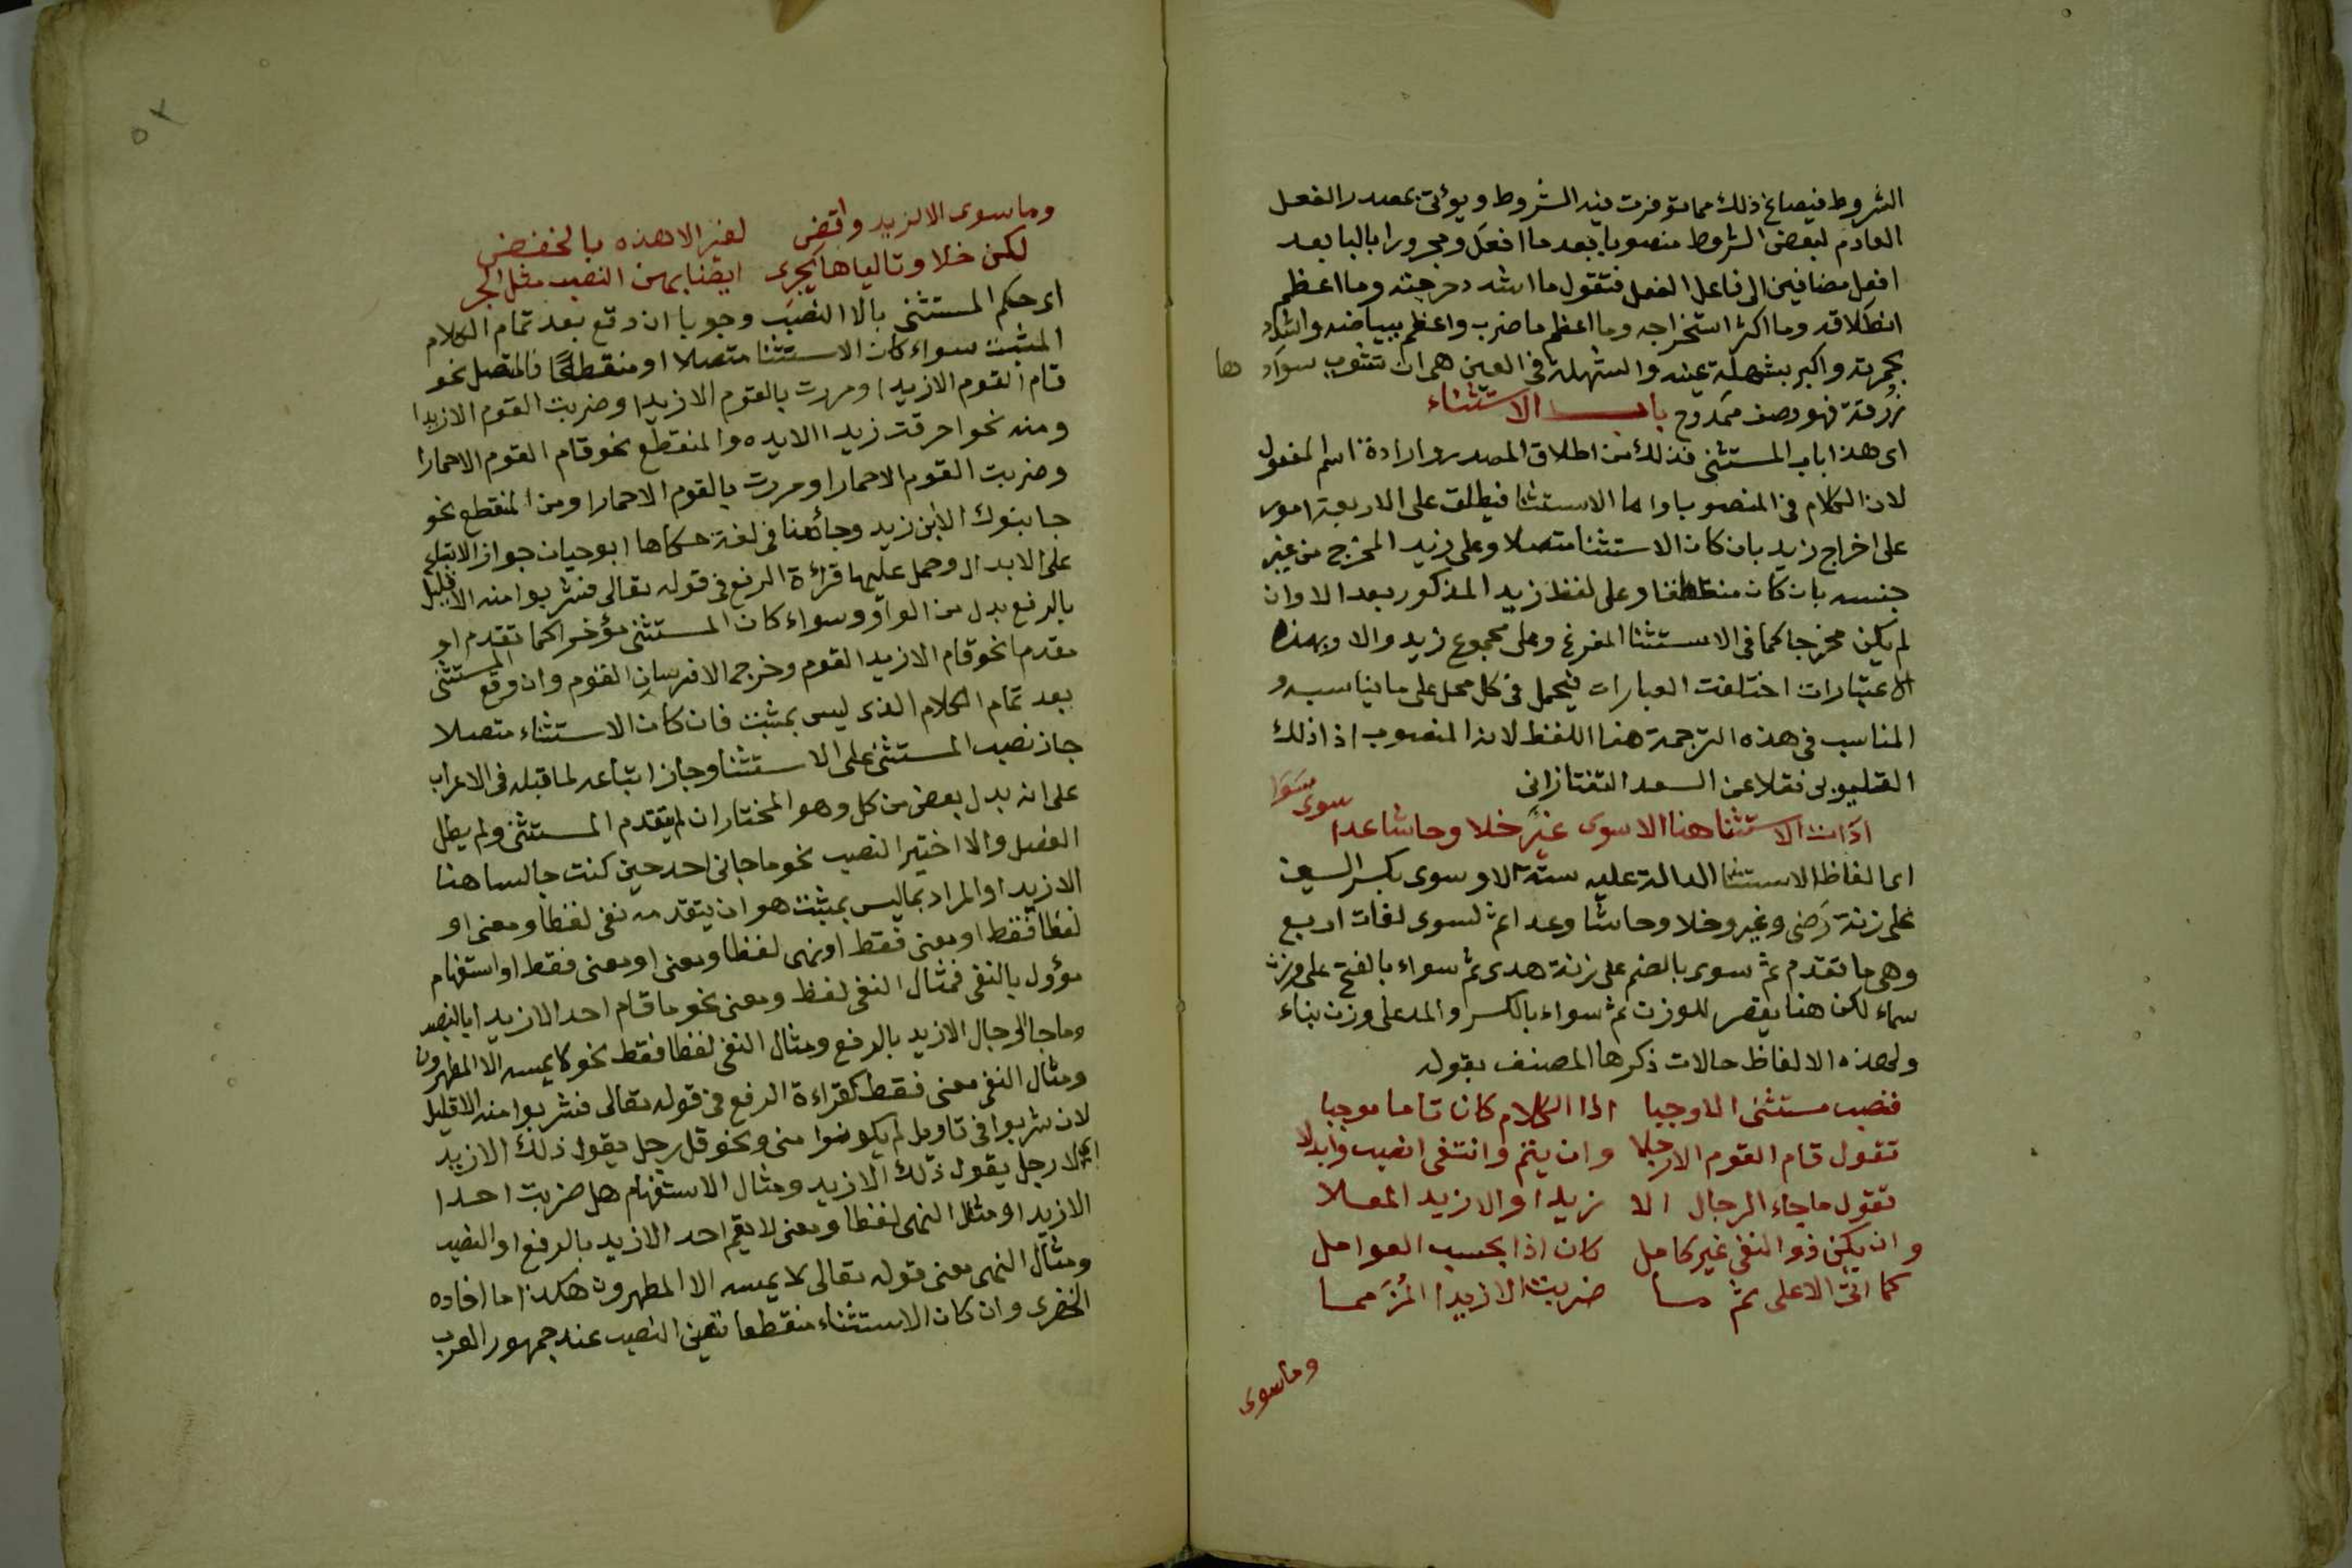 الشروط فيصاغ ذلك مما توفرت فيه الشروط ويؤتى بمصدر الفعل
العادم لبعض الشروط منصوبا بعد ما افعل ومجرورا بالبا بعد
افعل مضافين الى فاعل الفعل فتقول ما اشد دحرجته وما اعظم
انطلاقه وما اكثر استخراجه وما اعظم ما ضرب واعظم ببياضه واشدد
بحمرته واكبر بشهلة عينه والشهلة في العين هى ان تشوب سوادها
زرقة فهو وصف ممدوح باب الاستثناء
اى هذا باب المستثنى فذلك من اطلاق المصدر وارادة اسم المفعول
لان الكلام في المنصوبا واما الاستثنا فيطلق على الاربعة امور
على اخراج زيد بان كان الاستثنا متصلا وعلى زيد المخرج من غير
جنسه بان كان منقطعا وعلى لفظ زيد المذكور بعد الا وان
لم يكن مخرجا كما في الاستثنا المفرغ وعلى مجموع زيد والا وبهذه
الاعتبارات اختلفت العبارات فيحمل في كل محل على ما يناسبه و
المناسب في هذه الترجمة هذا اللفظ لان المنصوب اذا ذلك
القليوبى نقلا عن السعد التفتازانى
ادات الاستثنا هنا الا سوى غير خلا وحاشا عدا سوى سوا
اى الفاظ الاستثنا الدالة عليه ستة الا وسوى بكسر السين
على زنة رضى وغير وخلا وحاشا وعدا ثم لسوى لغات اربع
وهى ما تقدم ثم سوى بالضم على زنة هدى ثم سواء بالفتح على وزن
سماء لكن هنا يقصر للوزن ثم سواء بالكسر والمد على وزن بناء
ولهذه الالفاظ حالات ذكرها المصنف بقوله
فنصب مستثنى الا وجبا اذا الكلام كان تاما موجبا
تقول قام القوم الا رجلا وان يتم وانتفى انصب وابدلا
تقول ما جاء الرجال الا زيدا والا زيد المعلا
وان يكن ذو النفى غير كامل كان اذا بحسب العوامل
كما اتى الاعلى ثم ما ضربت الا زيدا
وما سوى
وما سوى الا لزيد واقض لغير الا هذه بالخفض
لكن خلا وتالياها يجرى ايضا بهن النصب مثل الجر
اى حكم المستثنى بالا النصب وجوبا ان وقع بعد تمام الكلام
المثبت سواء كان الاستثنا متصلا او منقطعا فالمتصل نحو
قام القوم الا زيدا ومررت بالقوم الا زيدا وضربت القوم الا زيدا
ومنه نحو احرقت زيدا الا يده والمنقطع نحو قام القوم الا حمارا
وضربت القوم الا حمارا ومررت بالقوم الا حمارا ومن المنقطع نحو
جا بنوك الا ابن زيد وجاء هنا في لغة حكاها ابو حيان جواز الاتباع
على الابدال وحمل عليها قراءة الرفع في قوله تعالى فشربوا منه الا قليل
بالرفع بدل من الواو وسواء كان المستثنى مؤخرا كما تقدم او
مقدما نحو قام الا زيدا القوم وخرج الا فرسان القوم وان وقع المستثنى
بعد تمام الكلام الذى ليس بمثبت فان كان الاستثناء متصلا
جاز نصب المستثنى على الاستثنا وجاز اتباعه لما قبله في الاعراب
على انه بدل بعض من كل وهو المختار ان لم يتقدم المستثنى ولم يطل
الفصل والا اختير النصب نحو ما جانى احد حين كنت جالسا هنا
الا زيدا والمراد بما ليس بمثبت هو ان يتقدمه نفى لفظا ومعنى او
لفظا فقط او معنى فقط او نهى لفظا ومعنى او معنى فقط او استفهام
مؤول بالنفى فمثال النفى لفظ ومعنى نحو ما قام احد الا زيدا بالنصب
وما جا الرجال الا زيد بالرفع ومثال النفى لفظا فقط نحو لا يمسه الا المطهرون
ومثال النفى معنى فقط كقراءة الرفع في قوله تعالى فشربوا منه الا قليل
لان شربوا في تاويل لم يكونوا منى ونحو قل رجل يقول ذلك الا زيد
اى لا رجل يقول ذلك الا زيد ومثال الاستفهام هل ضربت احدا
الا زيدا ومثال النهى لفظا ومعنى لا يقم احد الا زيد بالرفع او النصب
ومثال النهى معنى قوله تعالى لا يمسه الا المطهرون هكذا ما افاده
الخضرى وان كان الاستثناء منقطعا تعين النصب عند جمهور العرب